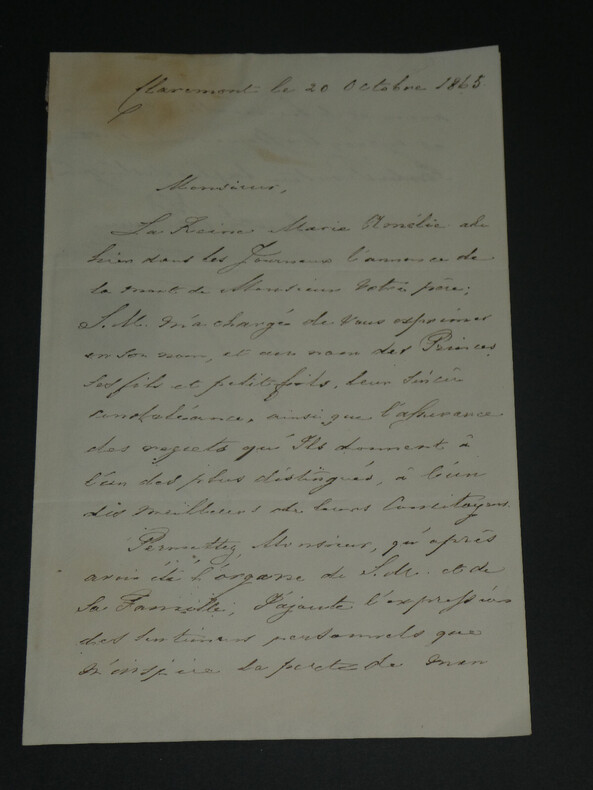 Claremont le 20 Octobre 1865
Monsieur,
La Reine Marie Amélie a lu
hier dans les Journaux l'annonce de
la mort de Monsieur votre père;
S. M. m'a chargé de vous exprimer
en son nom, et au nom des Princes,
ses fils et petits fils, leur sincère
condoléance, ainsi que l'assurance
des regrets qu'Ils donnent à
l'un des plus distingués, à l'un
des meilleurs de leurs Concitoyens.
Permettez, Monsieur, qu'après
avoir été l'organe de S. M. et de
Sa Famille, J'ajoute l'expression
des sentimens personnels que
m'inspire la perte de mon